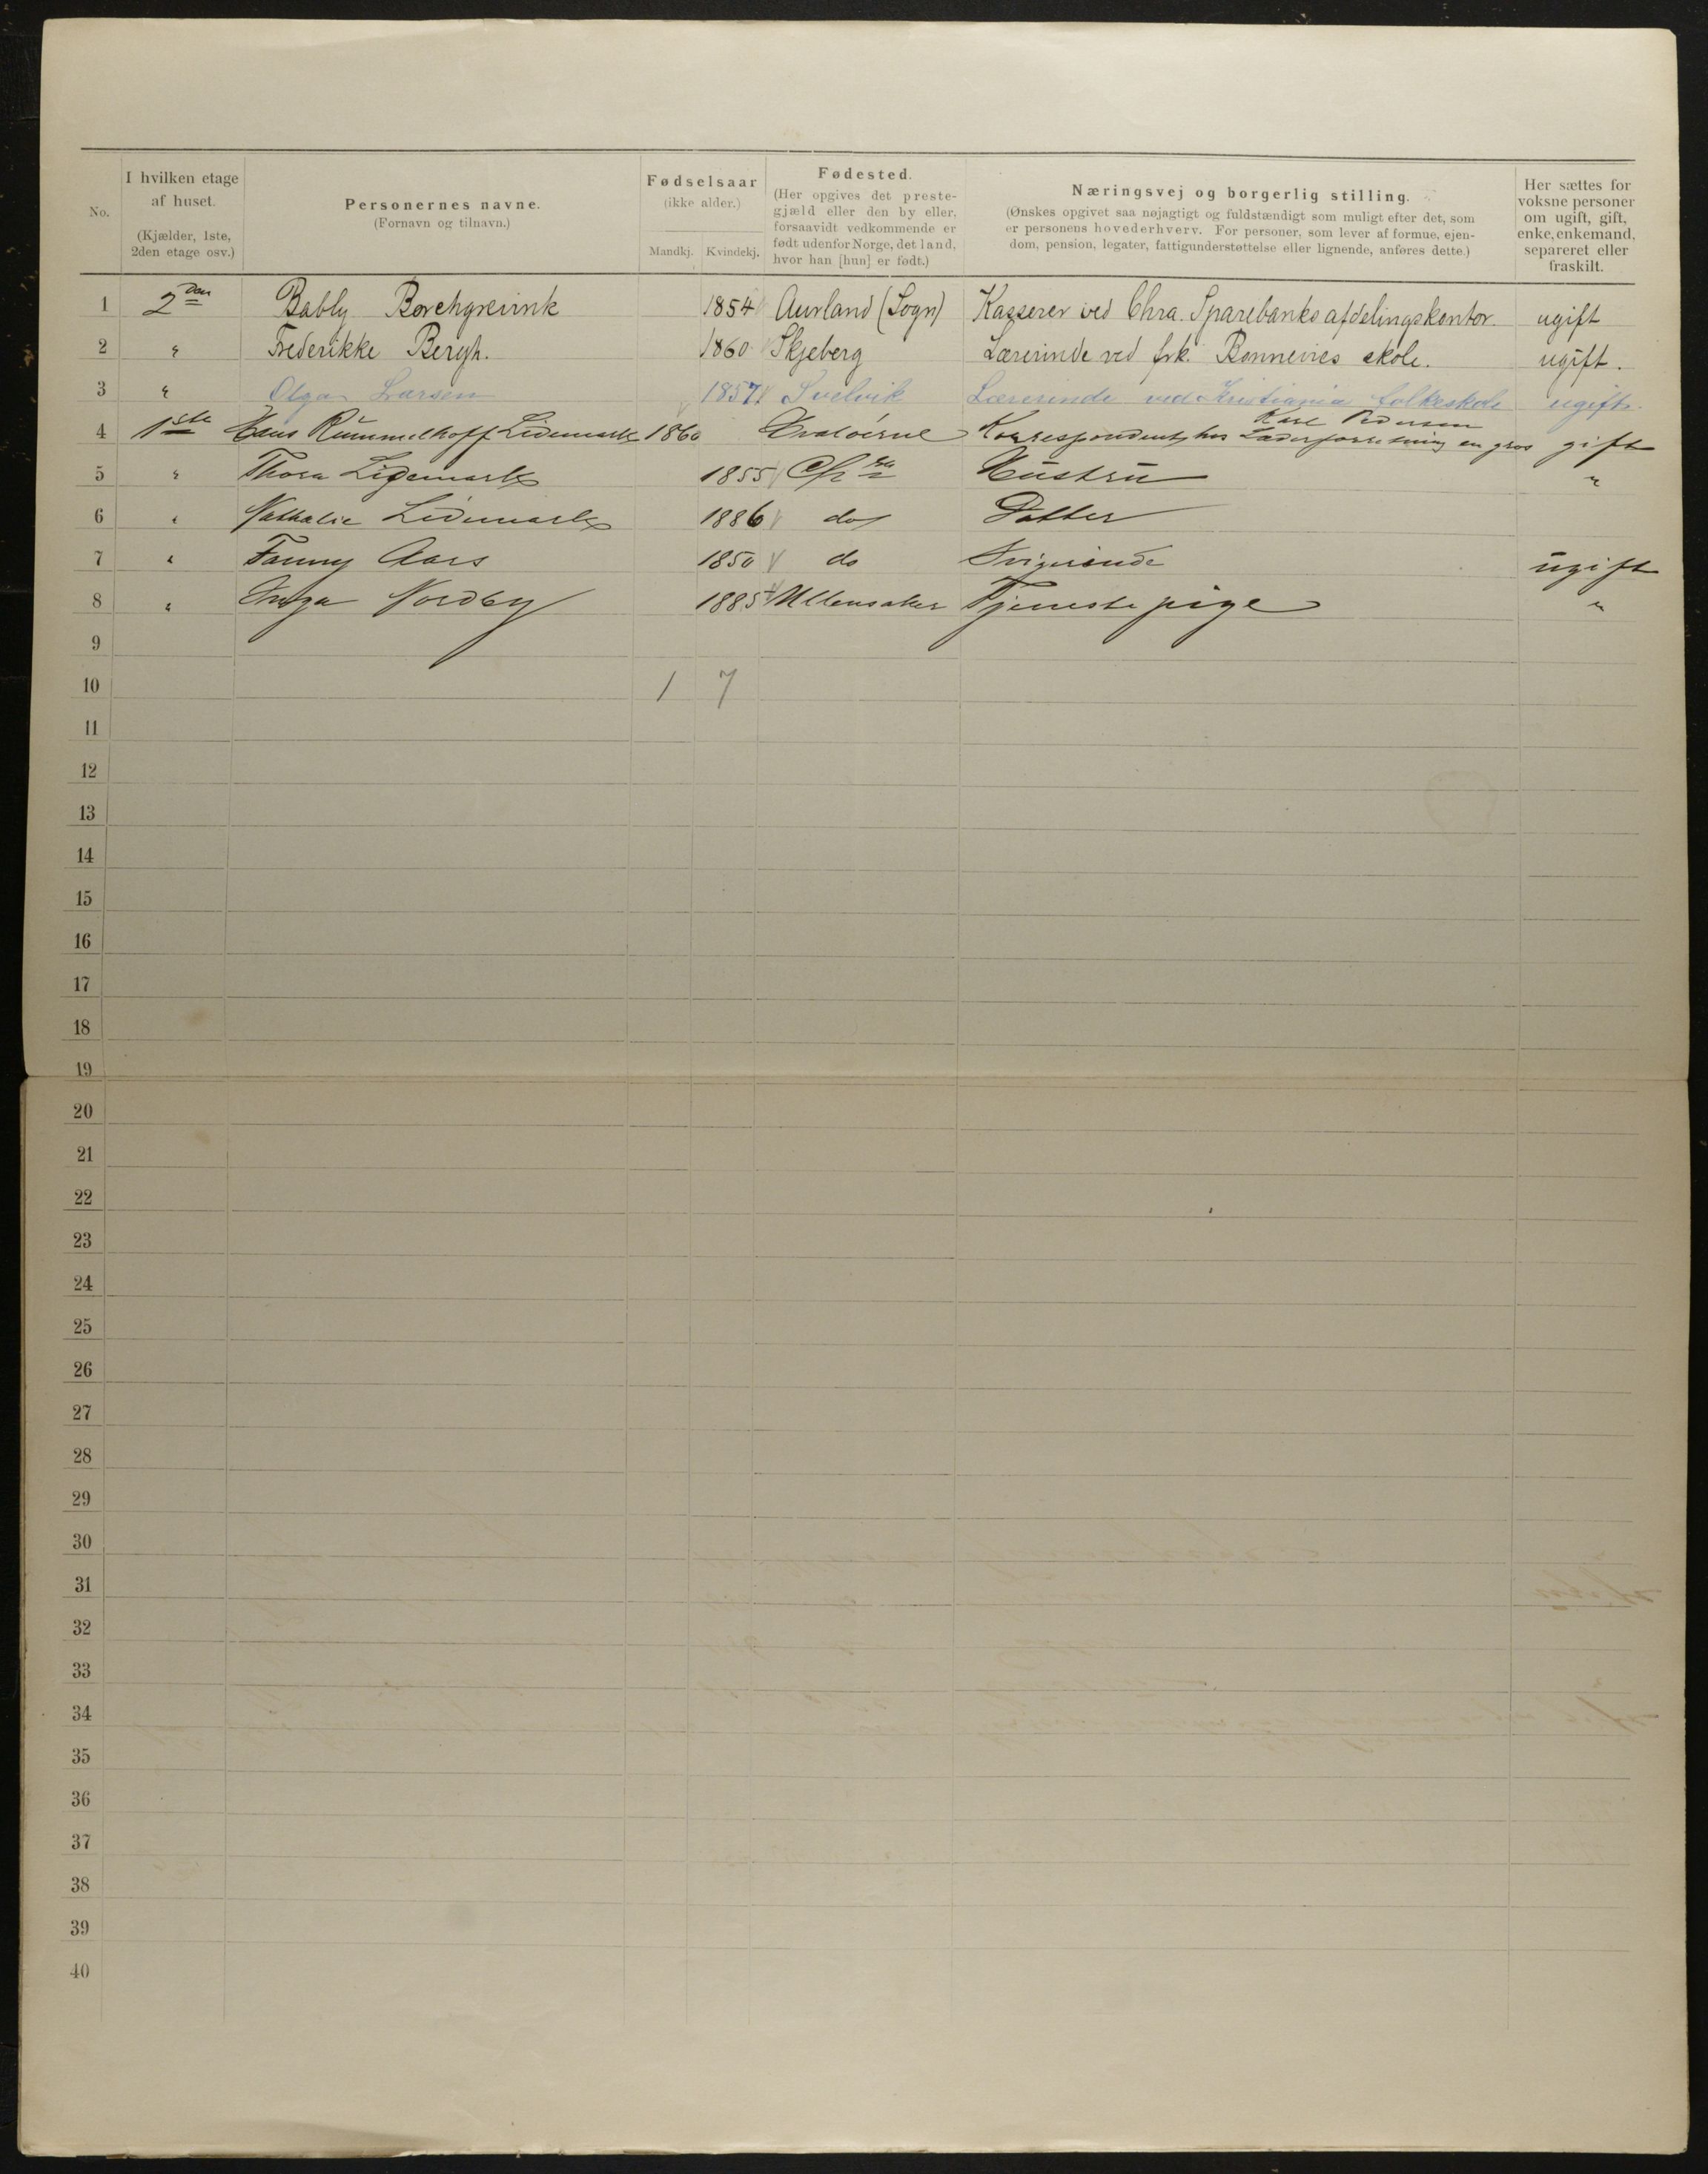 No. I hvilken etage af huset. (Kjælder, 1ste, 2den etage osv.) Personernes navne. (Fornavn og tilnavn.) Fødselsaar (ikke alder.) Mandkj. Kvindekj. Fødested. (Her opgives det prestegjæld eller den by eller, forsaavidt vedkommende er født udenfor Norge, det land, hvor han [hun] er født.) Næringsvej og borgerlig stilling. (Ønskes opgivet saa nøjagtigt og fuldstændigt som muligt efter det, som er personens hovederhverv. For personer, som lever af formue, ejendom, pension, legater, fattigunderstøttelse eller lignende, anføres dette.) Her sættes for voksne personer om ugift, gift, enke, enkemand, separeret eller fraskilt.
1 2den Bably Borchgrevink 1854 Aurland (Sogn) Kasserer ved Chra. Sparebanks afdelingskontor. ugift
2 " Frederikke Bergh. 1860 Skjeberg Lærerinde ved frk. Bonnevies skole. ugift.
3 " Olga Larsen 1857 Svelvik Lærerinde ved Kristiania folkeskole ugift.
4 1ste Hans Rummelhoff Lidemark 1860 Hvaløerne Korrespondent hos Karl Pedersen Læderforretning en gros gift
5 " Thora Lidemark 1855 Chra Hustru "
6 " Nathalie Lidemark 1886 do Datter
7 " Fanny Aars 1850 do Svigerinde ugift
8 " Inga Nordby 1885 Ullensaker Tjenestepige "
9
10 1 7
11
12
13
14
15
16
17
18
19
20
21
22
23
24
25
26
27
28
29
30
31
32
33
34
35
36
37
38
39
40